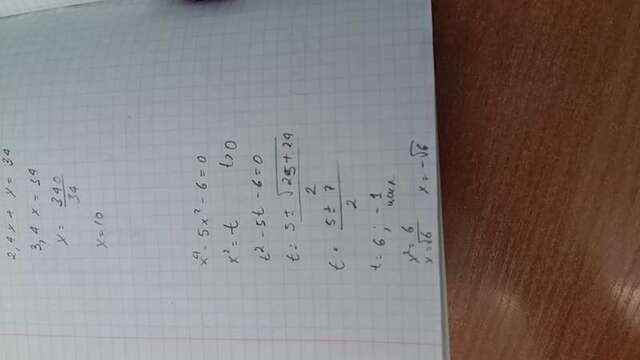 2,4x + x = 34
3,4 x = 34
x = 340/34
x = 10
x⁴ - 5x² - 6 = 0
x² = t t>0
t² - 5t - 6 = 0
t = 5 ± √25 + 24 / 2
t = 5 ± 7 / 2
t = 6 ; -1
искл
x² = 6
x = √6 x = -√6